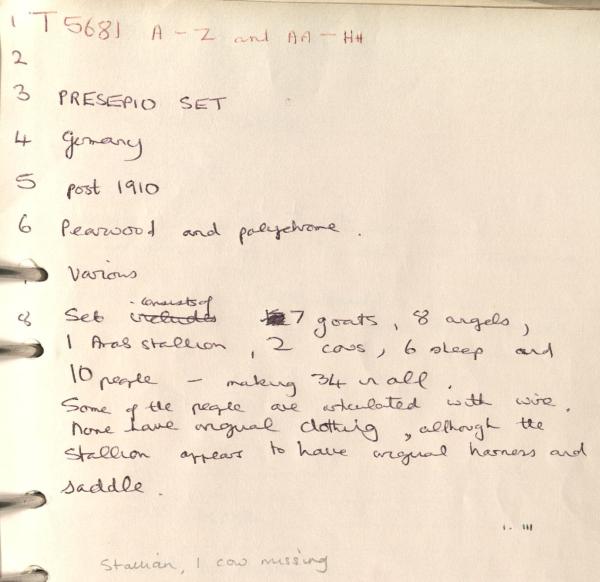 1 T 5681 A - Z and AA - HH
2
3 PRESEPIO SET
4 Germany
5 post 1910
6 Pearwood and polychrome.
Various
8 Set includes consists of 7 goats, 8 angels,
1 Arab stallion, 2 cows, 6 sheep and
10 people - making 34 in all.
Some of the people are articulated with wire.
None have original clothing, although the
stallion appears to have original harness and
saddle.
Stallian, 1 cow missing